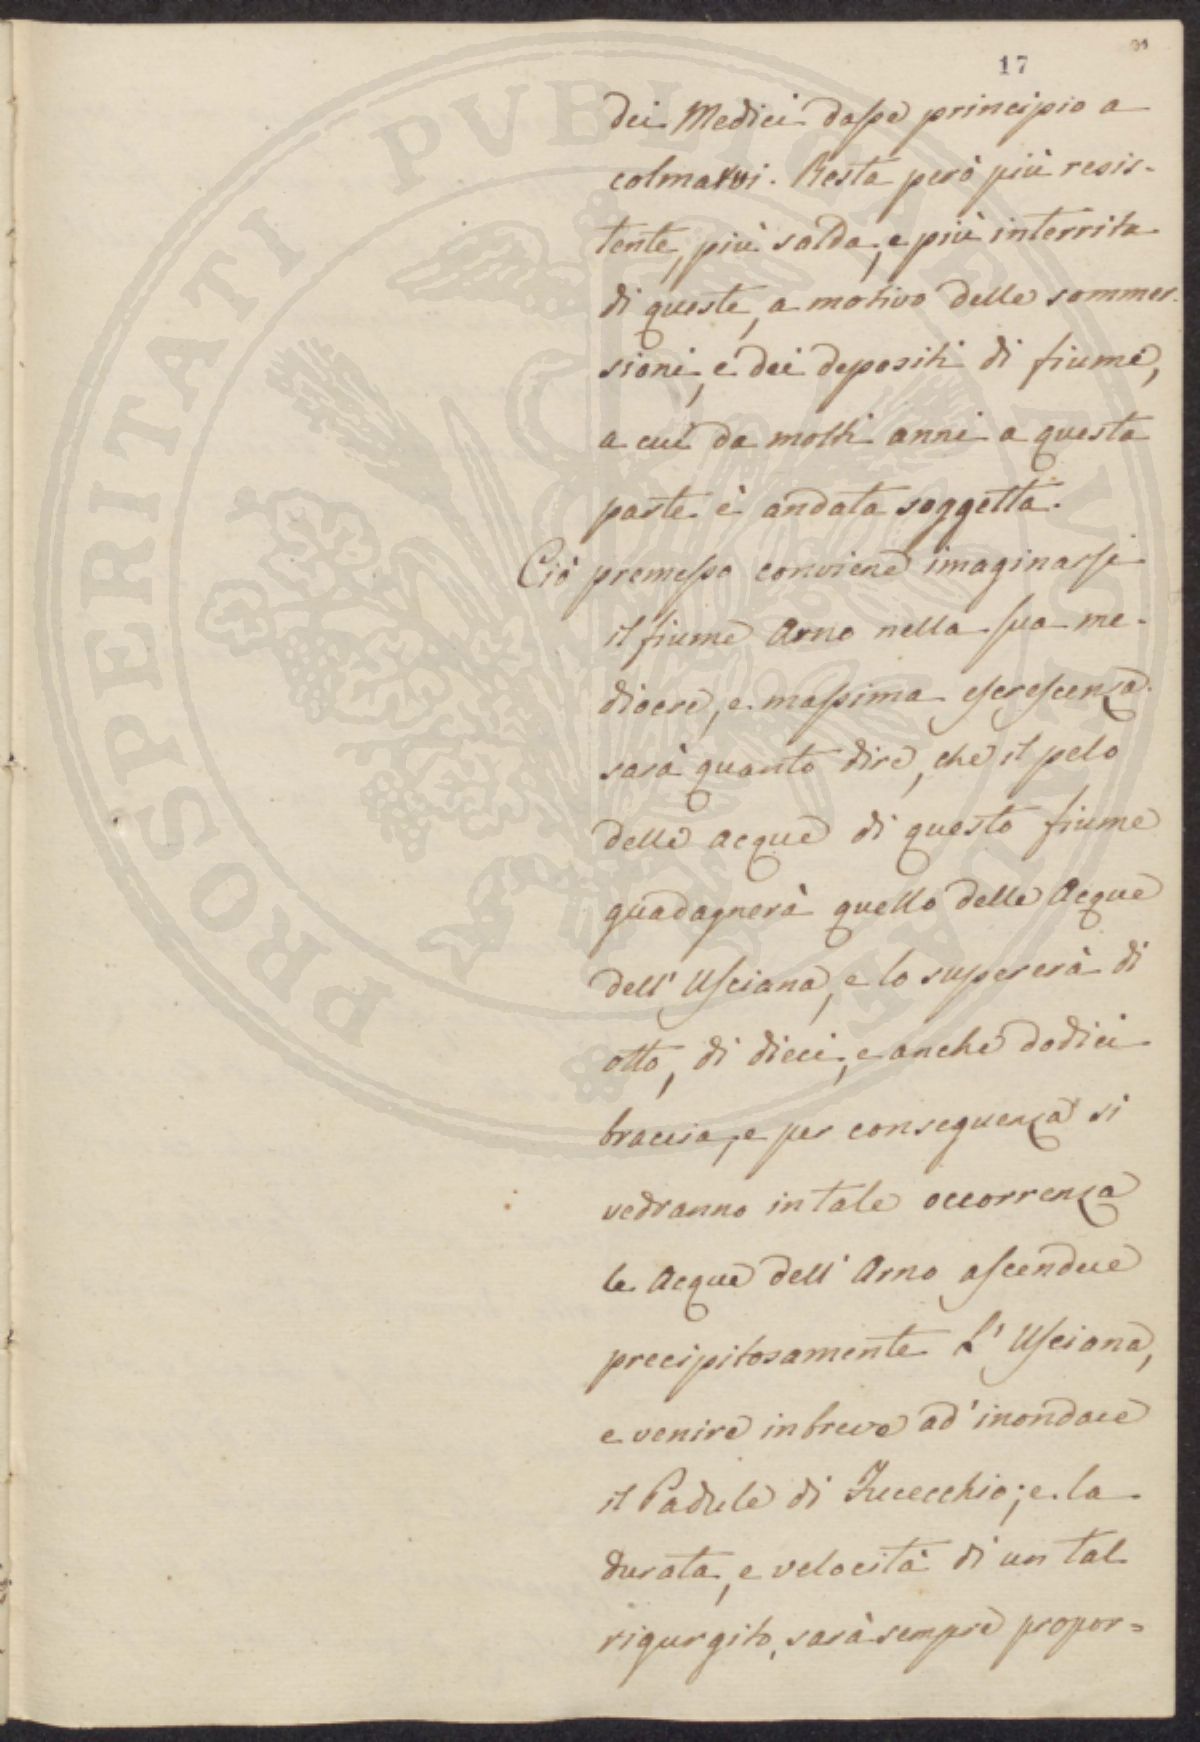 17
dei Medici dasse principio a
colmarvi. Resta però più resis-
tente, più salda, e più interrita
di queste, a motivo delle sommer-
sioni, e dei depositi di fiume,
a cui da molti anni a questa
parte è andata soggetta.
Ciò premesso conviene imaginarsi
il fiume Arno nella sua me-
diocre, e massima escrescenza
sarà quanto dire, che il pelo
delle acque di questo fiume
guadagnerà quello delle Acque
dell' Usciana, e lo supererà di
otto, di dieci, e anche dodici
braccia, e per conseguenza si
vedranno in tale occorrenza
le Acque dell' Arno ascendere
precipitosamente L' Usciana,
e venire in breve ad' inondare
il Padule di Fucecchio; e la
durata, e velocità di un tal
rigurgito, sarà sempre propor=
PROSPERITATI PVBLICAE